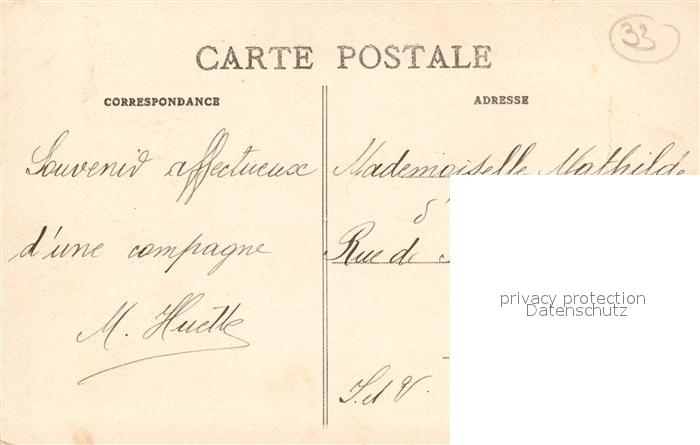 33
CARTE POSTALE
CORRESPONDANCE
ADRESSE
Souvenir affectueux
d'une compagne
M. Huette
Mademoiselle Mathilde
d'
Rue de
I. et V.
privacy protection
Datenschutz